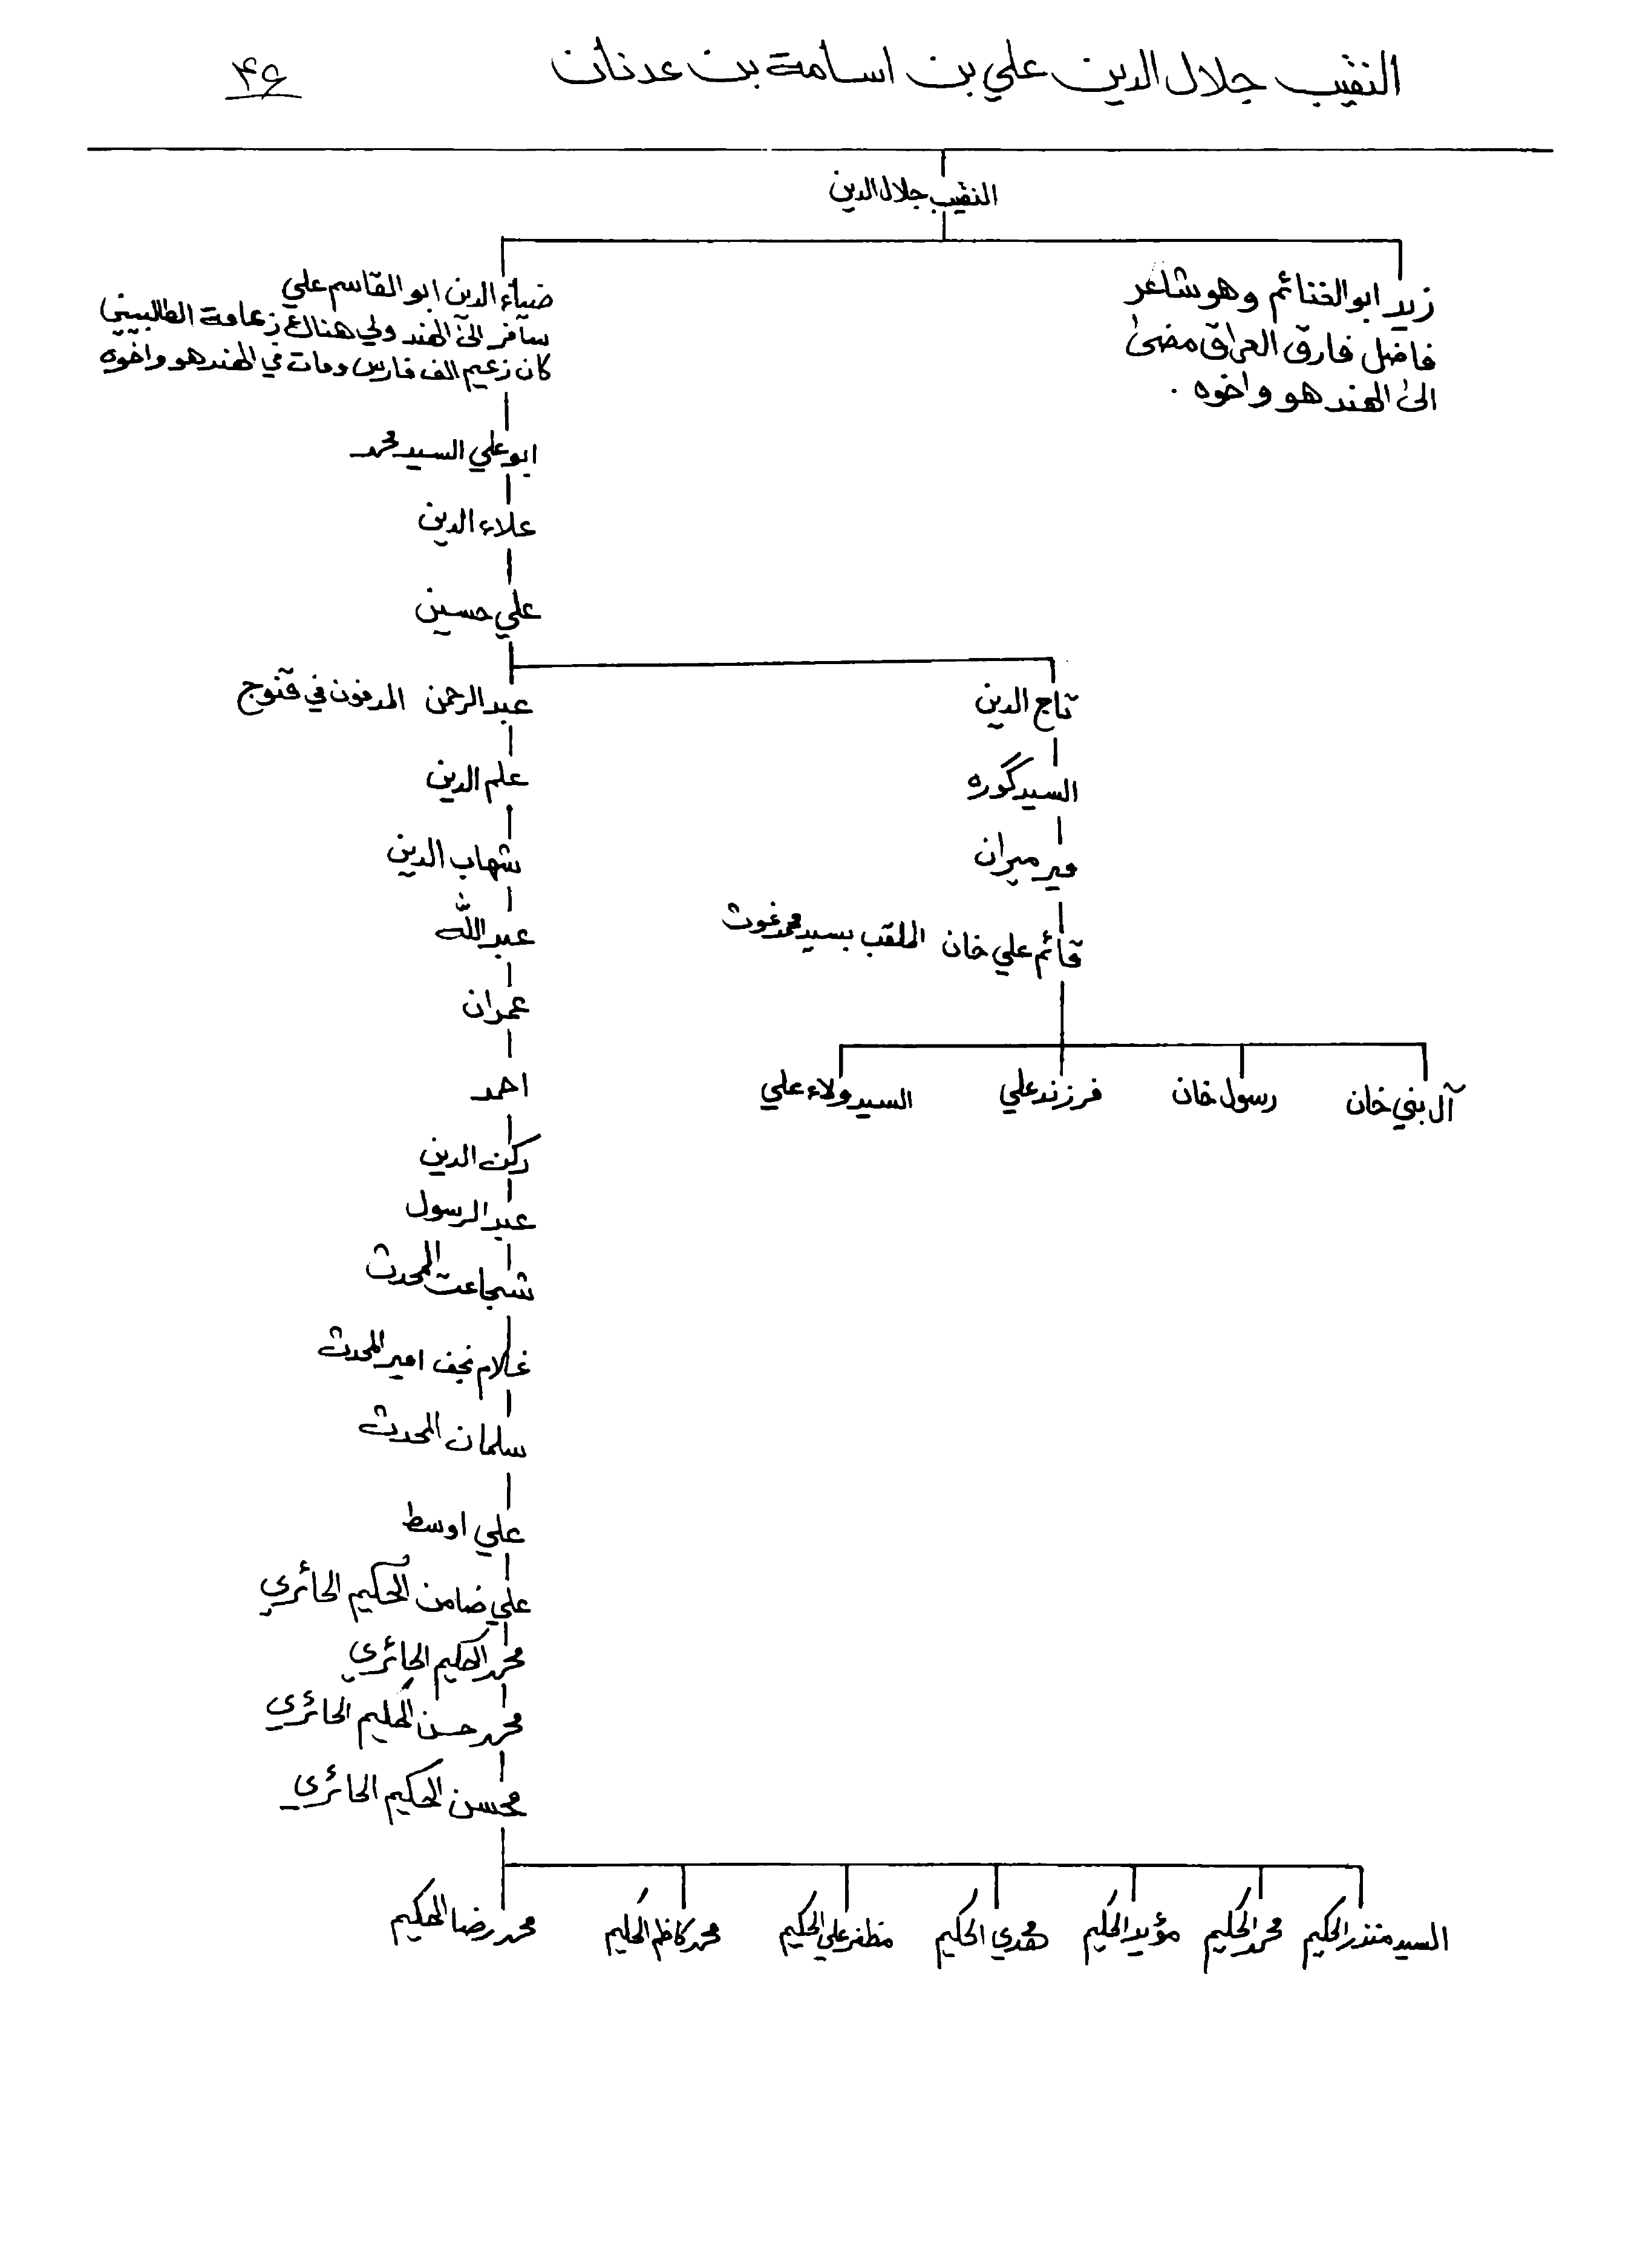 النقيب جلال الدين علي بن اسامة بن عدنان
۴۶
النقيب جلال الدين
زيد ابو الغنائم وهو شاعر
فاضل فارق العراق مضىٰ
الىٰ الهند هو واخوه .
ضياء الدين ابو القاسم علي
سافر الىٰ الهند ولي هناك زعامة الطالبيين
كان زعيم الف فارس ومات في الهند هو واخوه
ابو علي السيد محمد
علاء الدين
علي حسين
تاج الدين
السيد گوره
مير ميران
قائم علي خان الملقب بسيد محمد غوث
آل بني خان
رسول خان
فرزند علي
السيد ولاء علي
عبد الرحمن المدفون في قنوج
علم الدين
شهاب الدين
عبد الله
عمران
احمد
ركن الدين
عبد الرسول
شجاعت المحدث
غلام نجف امير المحدث
سلمان المحدث
علي اوسط
علي ضامن الحكيم الحائري
محمد الحكيم الحائري
محمد حسن الحكيم الحائري
محسن الحكيم الحائري
السيد منذر الحكيم
محمد الحكيم
مؤيد الحكيم
مهدي الحكيم
مظفر علي الحكيم
محمد كاظم الحكيم
محمد رضا الحكيم